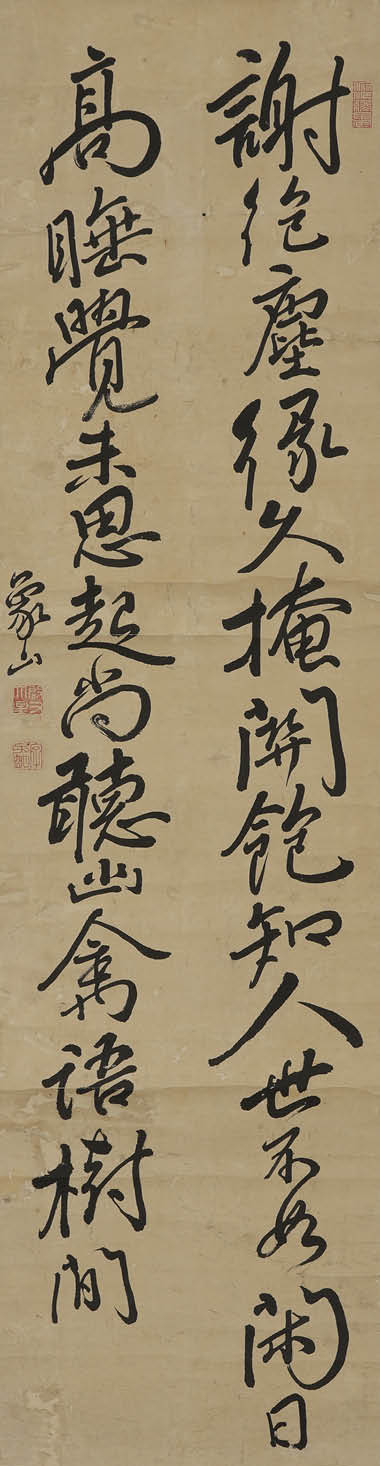 謝絶塵緣久掩關飽知人世不如閑日
高睡覺未思起尚聽幽禽語樹間
山